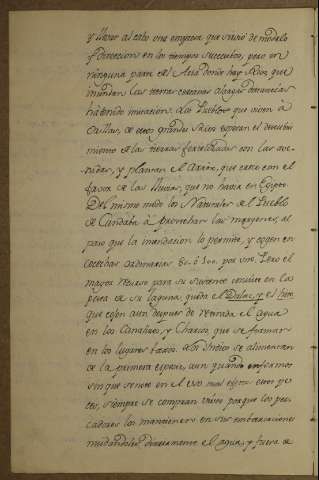 y llevar al cabo una empresa que sirvió de modelo
y direccion en los tiempos sucesivos, pero en
ninguna parte del Asia donde hay Rios que
inundan las tierras cercanas
ha tenido imitacion. Los Pueblos que viven à
orillas, de estos grandes Rios esperan el descubri
miento de las tierras fertilizadas con las ave-
nidas, y plantan el Arroz, que crece con el
favor de las lluvias, que no havia en Egipto.
Del mismo modo los Naturales del Pueblo
de Candaba à Aprovechan las mayores, al
paso que la inundacion lo permite, y cogen en
cosechas ordinarias 80. ò 100. por uno. Pero el
mayor recurso para su sustento consiste en la
pesca de su laguna, que da el Dalag, y el hito
que cogen aun despues de retirada el agua
en los Canalizos, y Charcos, que se forman
en los lugares baxos. Los Indios se alimentan
de la primera especie, aun quando enfermos
sin que se note en el uso mal efecto: estos pe-
ces, siempre se compran vivos porque los pes-
cadores los mantienen en sus embarcaciones
mudandoles diariamente el agua, y fuera de